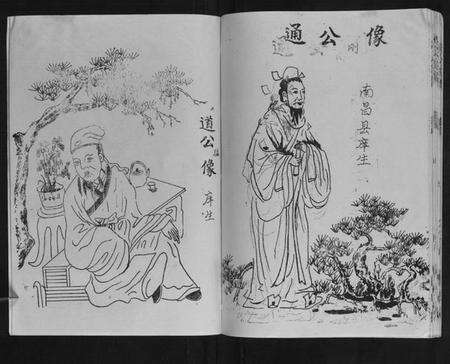 像公通
南昌县庠生
道公像
庠生